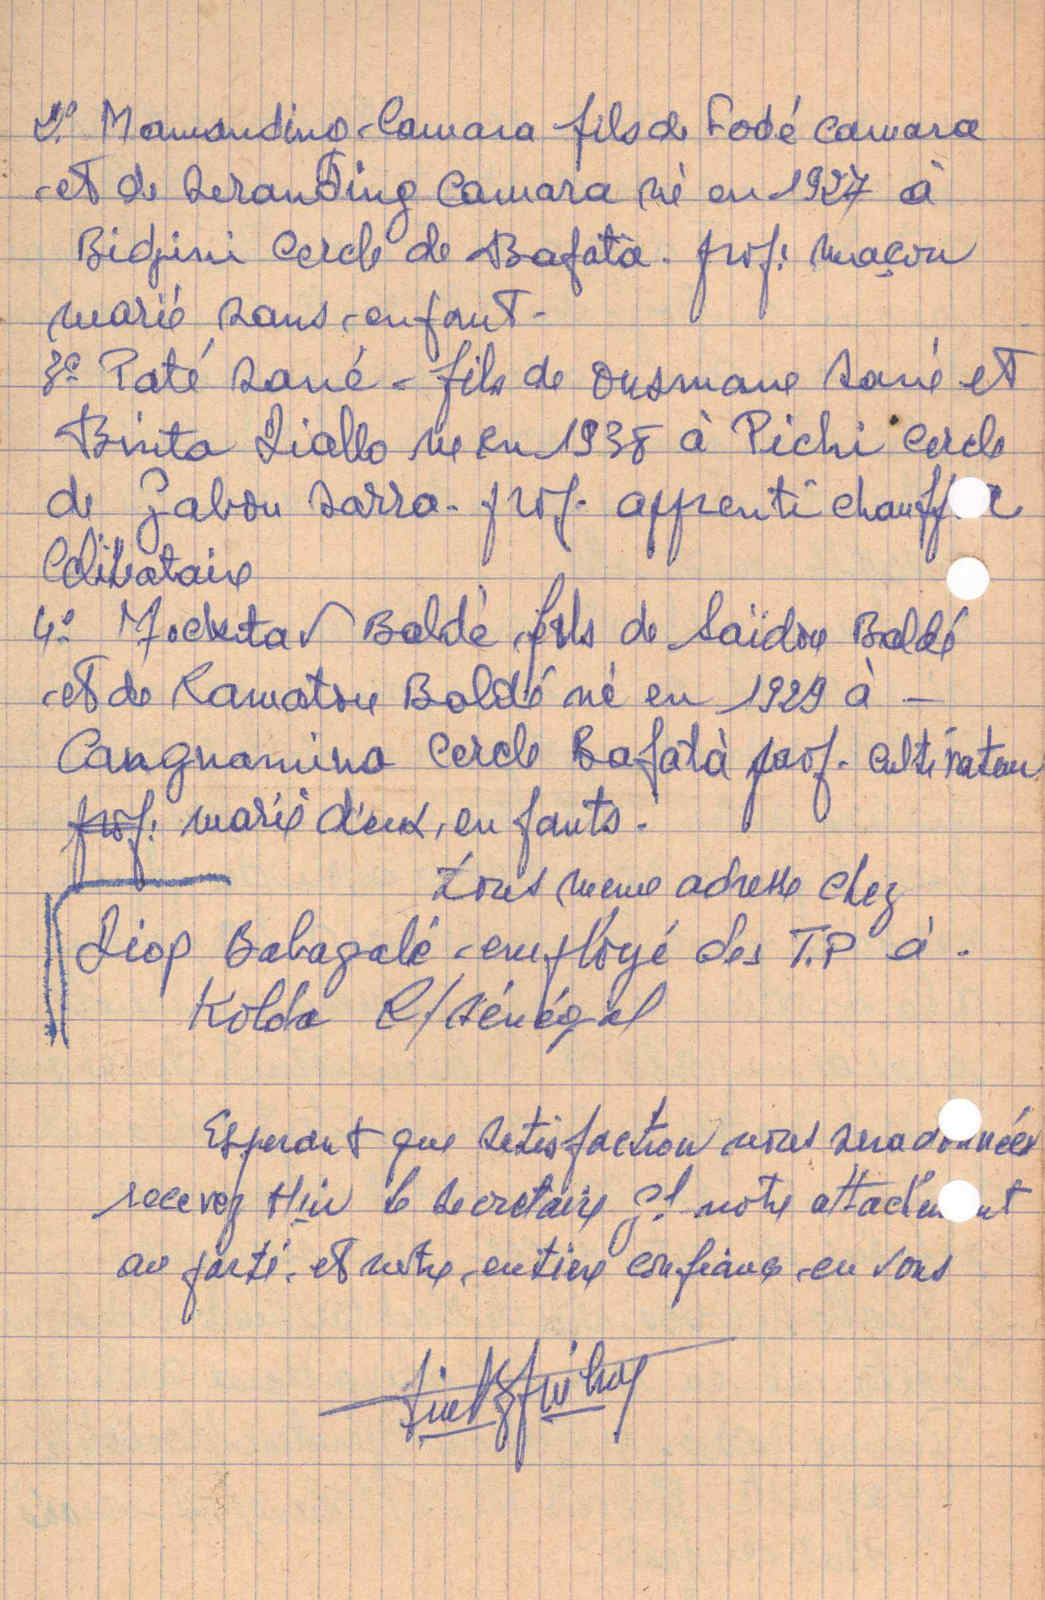 2º Mamandino Camara fils de Fodé Camara
et de Seranding Camara né en 1927 à
Bidjini Cercle de Bafata. prof: maçon
marié sans enfant.
3º Paté Sané - fils de Ousmane Sané et
Binta Diallo né en 1938 à Pichi Cercle
de Gabou Sarra. prof. apprenti chauff
Célibataire
4º Mocktar Baldé fils de Saïdou Baldé
et de Ramatou Baldé né en 1929 à -
Cangnamina Cercle Bafatà prof. cultivateur
prof: marié deux enfants.
Tous meme adresse chez
Diop Babagalé employé des T.P à.
Kolda R/Sénégal
Esperant que satisfaction nous sera données
recevez Mr le Secretaire Gl notre attachement
au parti et notre entière confiance en vous